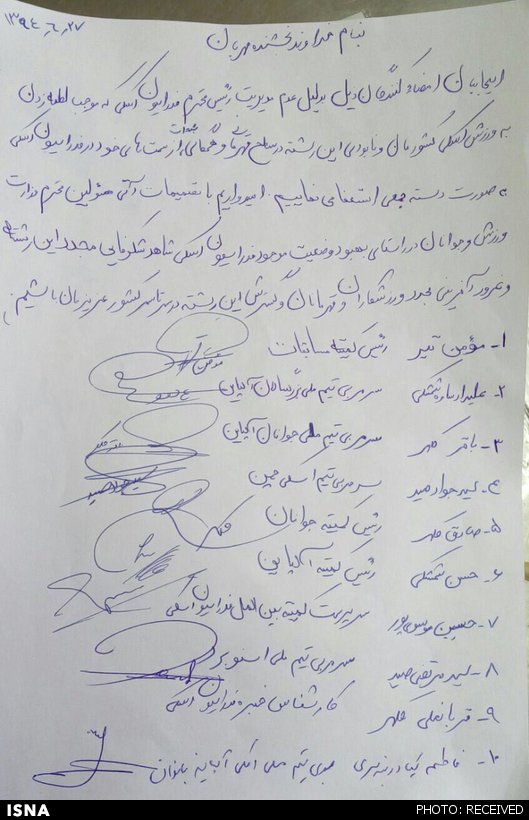 ۱۳۹۴٫۶٫۲۷
بنام خداوند بخشنده مهربان
اینجانبان امضاء کنندگان ذیل بدلیل عدم مدیریت رئیس محترم فدراسیون اسکی که موجب لطمه زدن
به ورزش اسکی کشورمان و نابودی این رشته در سطح قهرمانی و همگانی شده است از سمت های خود در فدراسیون اسکی
به صورت دسته جمعی استعفا می نماییم. امیدواریم با تصمیمات آتی مسئولین محترم وزارت
ورزش و جوانان در راستای بهبود وضعیت موجود فدراسیون اسکی شاهد شکوفایی مجدد این رشته
و غرور آفرینی مجدد ورزشکاران و قهرمانان و گسترش این رشته در سرتاسر کشور عزیزمان باشیم.
۱- مؤمن تیر رئیس کمیته مسابقات
۲- علیداد ساوه شمشکی سرمربی تیم ملی بزرگسالان آلپاین
۳- باقر کلهر سرمربی تیم ملی جوانان آلپاین
۴- سید جواد صید سرمربی تیم اسکی چمن
۵- صادق کلهر رئیس کمیته جوانان
۶- حسن شمشکی رئیس کمیته آلپاین
۷- حسین موسی پور سرپرست کمیته بین الملل فدراسیون اسکی
۸- سید مرتضی صید سرمربی تیم ملی اسنوبرد
۹- قربانعلی کلهر کارشناس خبره فدراسیون اسکی
۱۰- فاطمه کیادربندسری مربی تیم ملی اسکی آلپاین بانوان
ISNA
PHOTO: RECEIVED